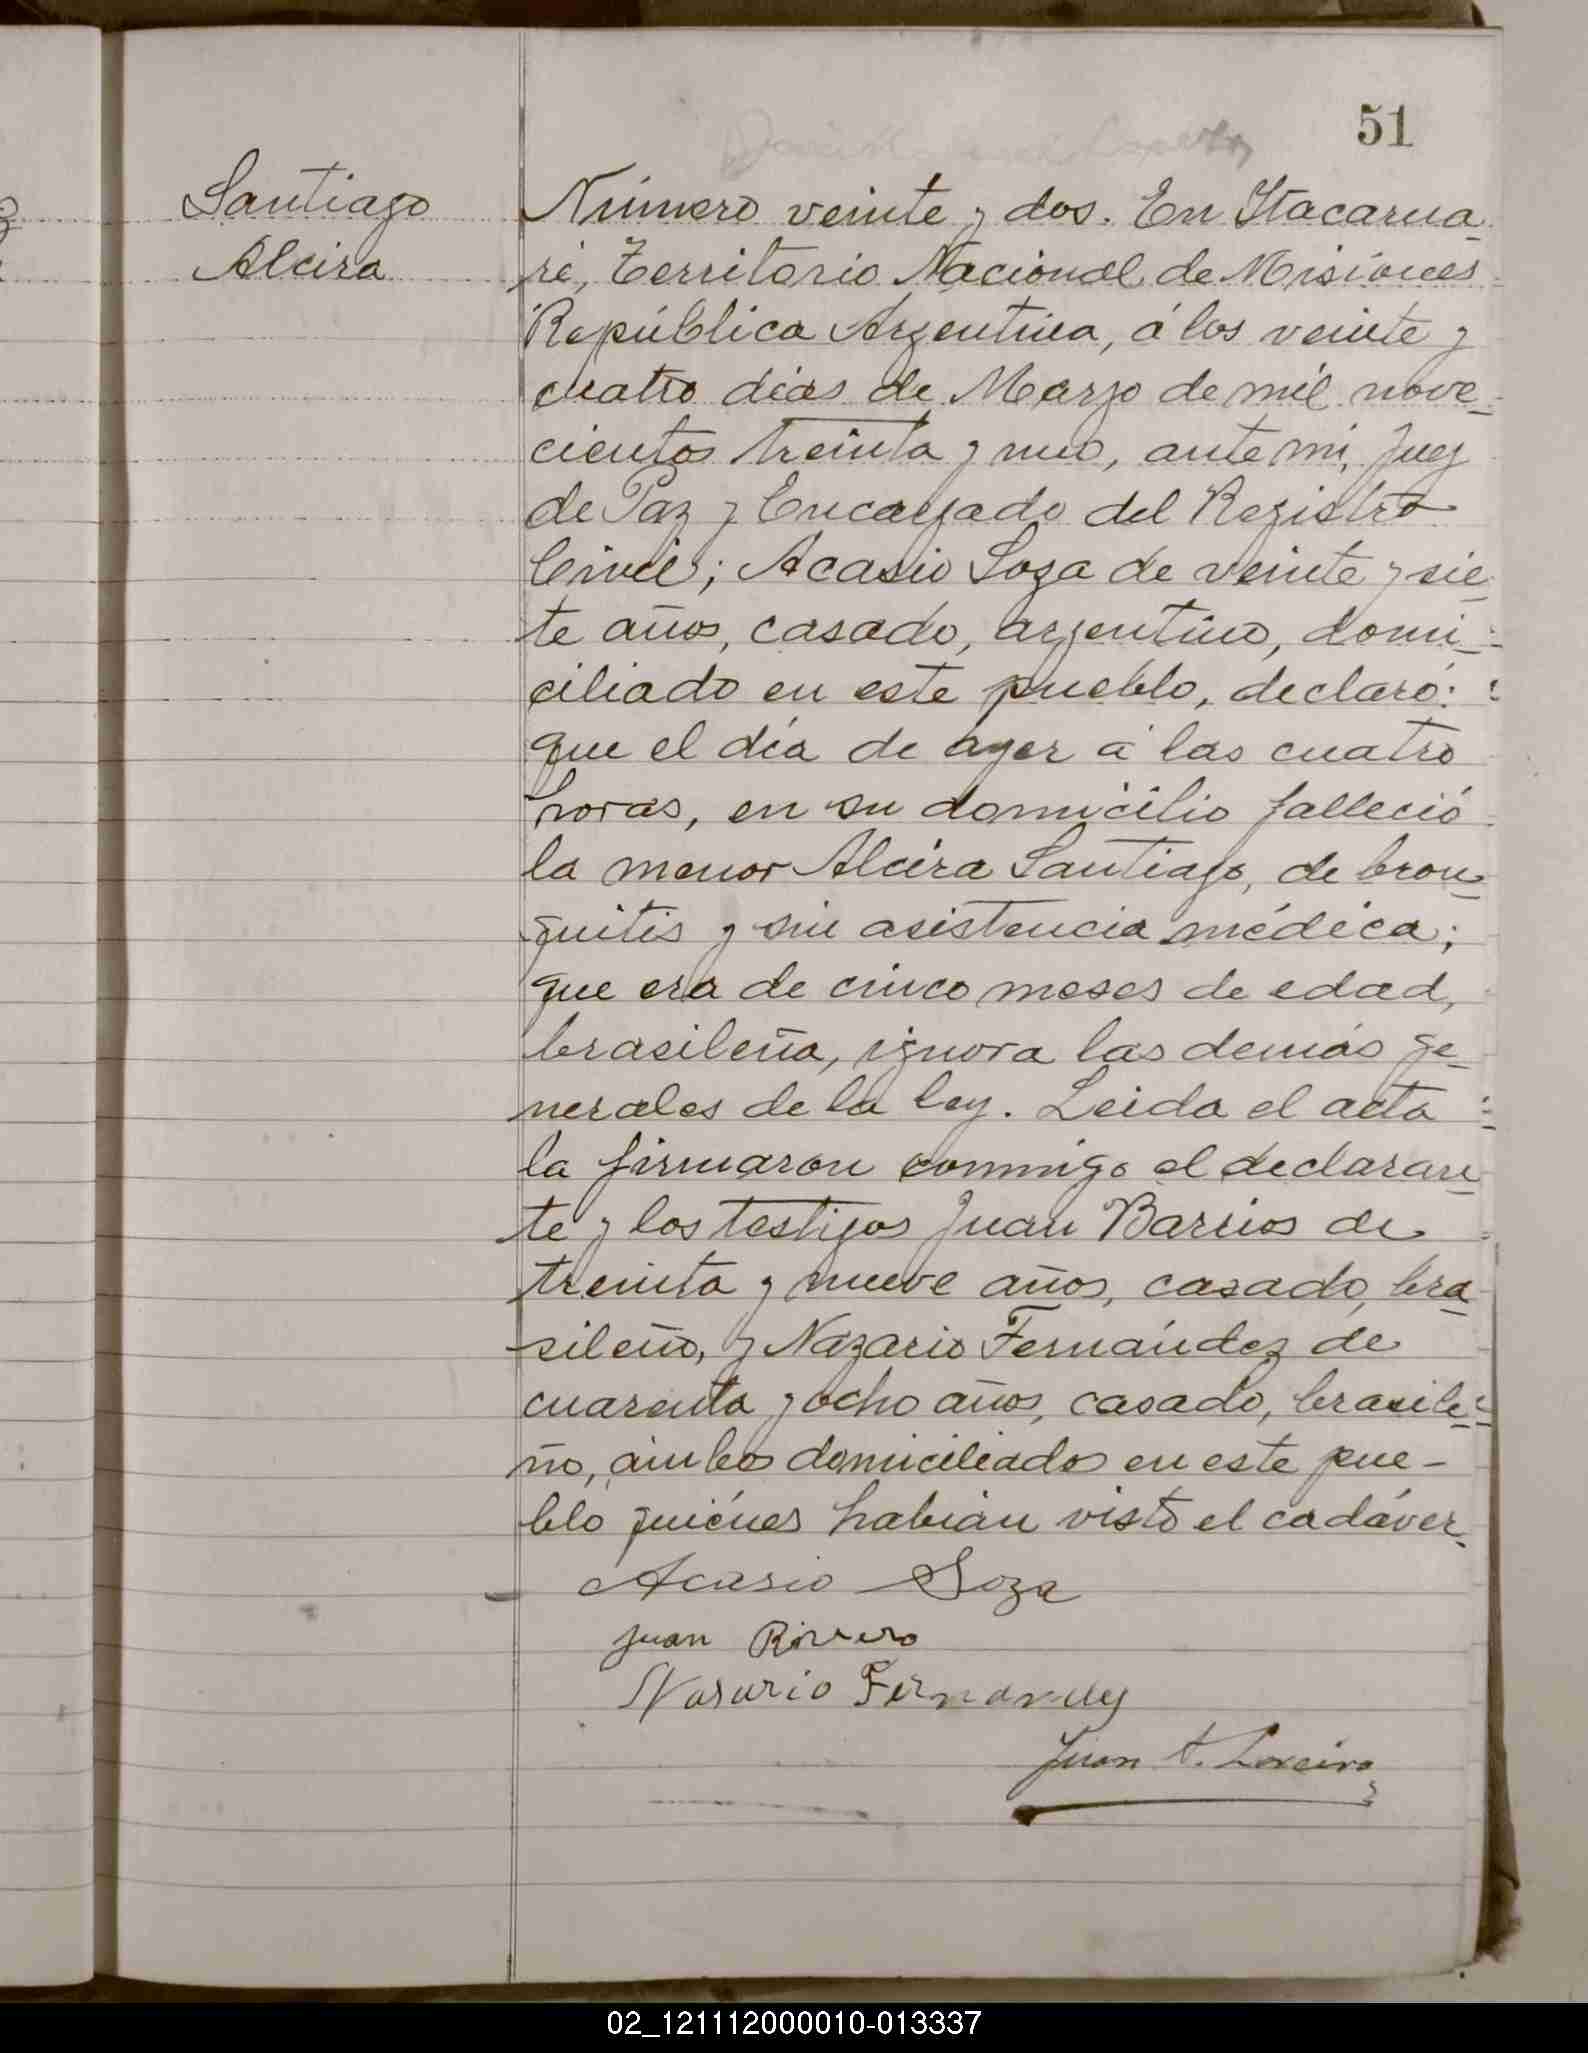 51
Santiago
Alcira
Número veinte y dos. En Itacarua
ré, Territorio Nacional de Misiones
República Argentina, á los veinte y
cuatro días de Marzo de mil nove-
cientos treinta y uno, ante mi, Juez
de Paz y Encargado del Registro
Civil; Acasio Soza de veinte y sie-
te años, casado, argentino, domi-
ciliado en este pueblo, declaró:
que el día de ayer á las cuatro
horas, en su domicilio falleció
la menor Alcira Santiago, de bron-
quitis y sin asistencia médica;
que era de cinco meses de edad,
brasileña, ignora las demás ge-
nerales de la ley. Leida el acta
la firmaron conmigo el declaran-
te y los testigos Juan Barrios de
treinta y nueve años, casado, bra-
sileño, y Nazario Fernández de
cuarenta y ocho años, casado, brasile-
ño, ámbos domiciliados en este pue-
blo quiénes habian visto el cadáver.
Acasio Soza
Juan
Nasario Fernandez
Juan A.
02_121112000010-013337